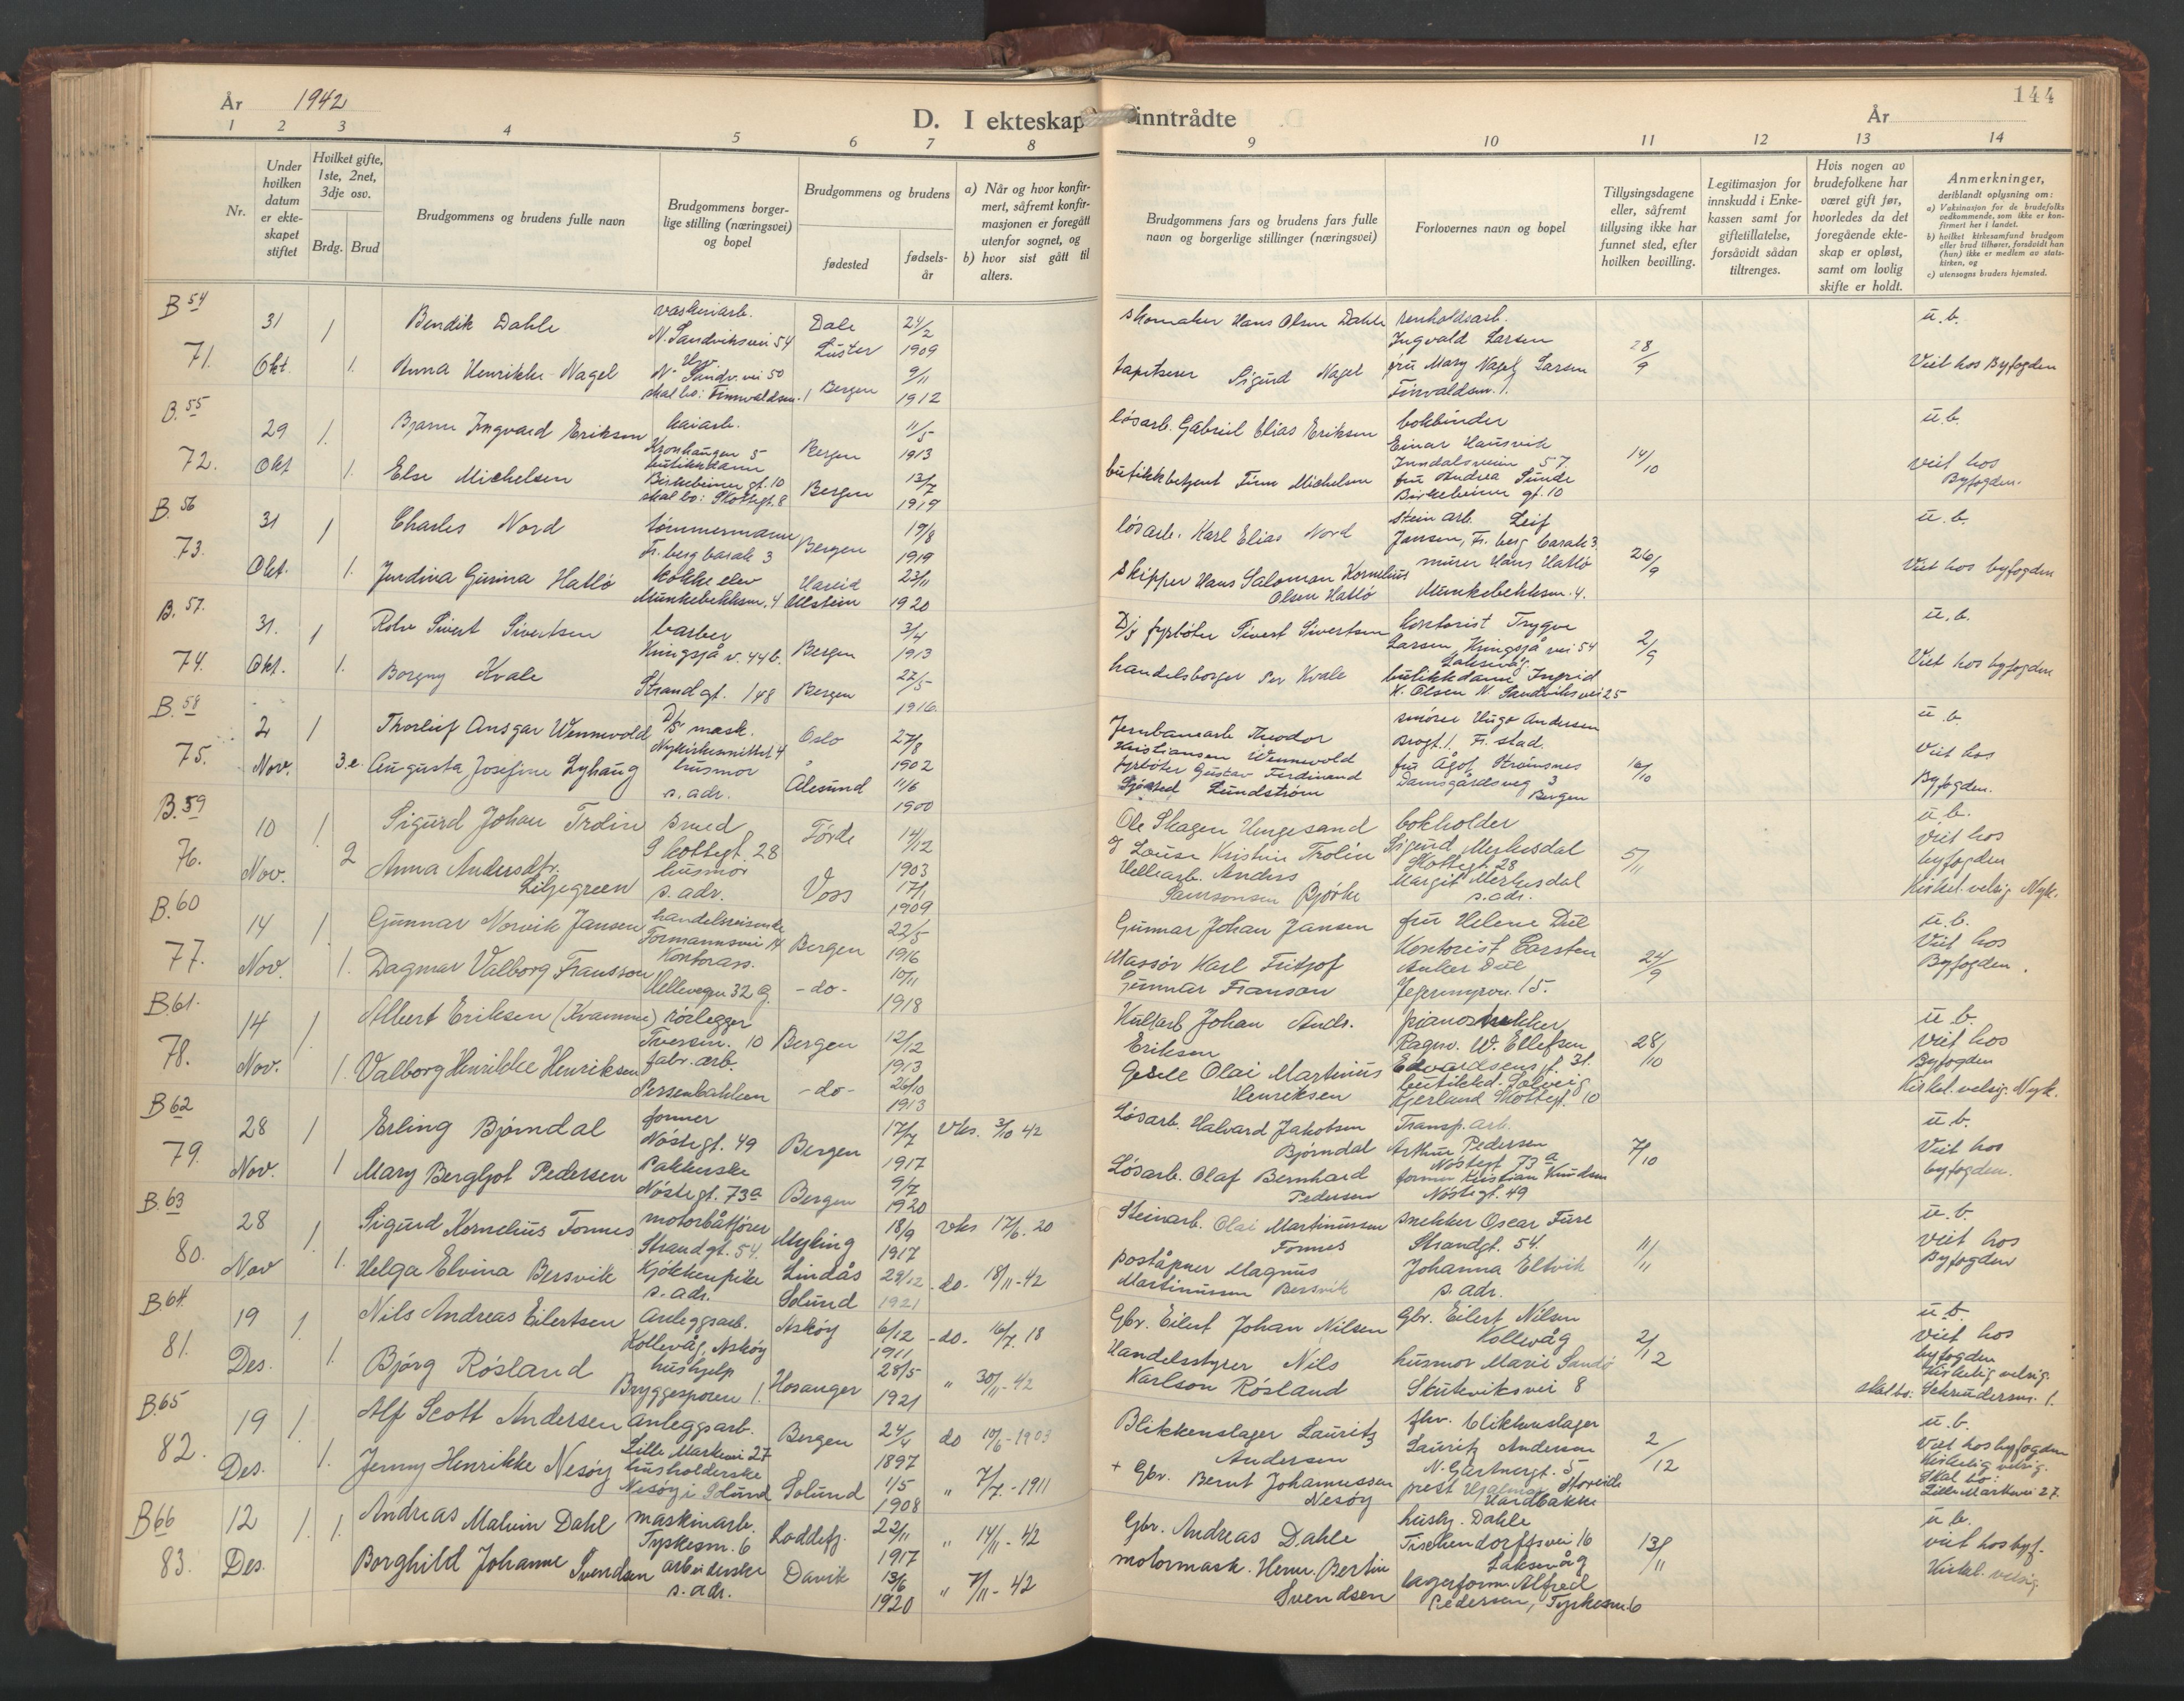 År 1942
D. I ekteskap inntrådte
År
144
1 2 3 4 5 6 7 8 9 10 11 12 13 14
Nr.
Under hvilken datum er ekteskapet stiftet
Hvilket gifte, 1ste, 2net, 3dje osv.
Brdg. Brud
Brudgommens og brudens fulle navn
Brudgommens borgerlige stilling (næringsvei) og bopel
Brudgommens og brudens
fødested
fødselsår
a) Når og hvor konfirmert, såfremt konfirmasjonen er foregått utenfor sognet, og
b) hvor sist gått til alters.
Brudgommens fars og brudens fars fulle navn og borgerlige stillinger (næringsvei)
Forlovernes navn og bopel
Tillysingsdagene eller, såfremt tillysing ikke har funnet sted, efter hvilken bevilling.
Legitimasjon for innskudd i Enkekassen samt for giftetillatelse, forsåvidt sådan tiltrenges.
Hvis nogen av brudefolkene har været gift før, hvorledes da det foregående ekteskap er opløst, samt om lovlig skifte er holdt.
Anmerkninger, deriblandt oplysning om:
a) Vaksinasjon for de brudefolks vedkommende, som ikke er konfirmert her i landet.
b) hvilket kirkesamfund brudgom eller brud tilhører, forsåvidt han (hun) ikke er medlem av statskirken, og
c) utensogns bruders hjemsted.
B 54 31 1 Bendik Dahle vaskeriarb. N. Sandviksvei 54 Dale Luster 24/2 1909 skomaker Hans Olsen Dahle renholdsarb. Ingvald Larsen 28/9 u.b.
71. Okt. 1. Anna Henrikke Nagel N. Sandv.vei 50 skal bo: Finnvaldsm. 1 Bergen 9/11 1912 tapetserer Sigurd Nagel fru Mary Nagel Larsen Finvaldsm. 1. Viet hos Byfogden
B. 55 29 1. Bjarne Ingvard Eriksen kaiarb. Kronhaugen 5 Bergen 11/5 1913 løsarb. Gabriel Elias Eriksen bokbinder Einar Hausvik Inndalsveien 57. 14/10 u.b.
72. Okt 1. Else Michelsen butikkdame Birkebeiner gt. 10 skal bo: Skottegt. 8 Bergen 13/7 1919 butikkbetjent Finn Michelsen fru Andrea Sunde Birkebeiner gt. 10 viet hos Byfogden.
B. 56 31 1 Charles Nord tømmermann Fr. berg barak 3 Bergen 19/8 1919 løsarb. Karl Elias Nord Stein arb. Leif Jansen, Fr. berg barak 3. 26/9 u.b.
73. Okt. 1. Jurdina Gurina Hatlø kokke elev Munkebekksm. 4 Hareid Ulstein 23/11 1920 Skipper Hans Salomon Kornelius Olsen Hatlø murer Hans Hatlø Munkebekksm. 4. Viet hos byfogden
B. 57. 31. 1 Rolv Sivert Sivertsen barber Kringsjå v. 44 b. Bergen 3/4 1913 D/s fyrbøter Sivert Sivertsen kontorist Trygve Larsen, Kringsjå vei 54 Laksevåg. 2/9 u.b.
74. Okt. 1. Borgny Kvale Strandgt. 148 Bergen 22/5 1916. handelsborger Per Kvale butikkdame Ingrid K. Olsen N. Sandviksvei 25 Viet hos byfogden
B. 58 2 1 Thorleif Ansgar Wennevold D/s mask. Nykirkesmittet 4 Oslo 27/8 1902 Jernbanearb Theodor Kristiansen Wennevold smører Hugo Andersen Brogt. 1. Fr. stad. 10/10 u.b.
75. Nov. 3.e. Augusta Josefine Lyhaug husmor s. adr. Ålesund 11/6 1900 fyrbøter Gustav Ferdinand Sjøsted Lundstrøm fru Ågot Strømsnes Damsgårdsveg 3 Bergen Viet hos Byfogden.
B. 59 10 1 Sigurd Johan Trolin Smed Skottegt. 28 Førde 14/12 1903 Ole Skagen Hengesand og Louise Kristine Trolin bokholder Sigurd Merkesdal Skottegt. 28 5/11 u.b.
76. Nov. 2 Anna Andersdtr. Liljegreen husmor s. adr. Voss 17/1 1909 Anders Samsonsen Bjørke Margit Merkesdal s. adr. viet hos byfogden Kirkel. velsig. Nyk.
B. 60 14 1. Gunnar Norvik Jansen handelsreisende Formannsvei 14 Bergen 22/5 1916 Gunnar Johan Jansen fru Helene Due 24/9 u.b.
77. Nov. 1. Dagmar Valborg Fransson Kontorass. Hellevegen 32 g. -do- 10/11 1918 Massør Karl Fritjof Gunnar Franson Kontorist Carsten Anker Due Jegermyrvn. 15. Viet hos Byfogden.
B 61. 14 1. Albert Eriksen (Kvamme) rørlegger Tverrsm. 10 Bergen 12/12 1913 Kullarb Johan Andr. Eriksen pianosnekker Ragnv. W. Ellefsen Edvardsensgt. 31. 28/10 u.b.
78. Nov. 1. Valborg Henrikke Henriksen fabr. arb. Perssenbakken -do- 26/10 1913 Gesell Olai Martinius Henriksen butikkd. Solveig Kjerland Skottegt. 10 viet hos Byfogden Kirkel. velsig. Nyk.
B 62 28 1 Erling Bjørndal former Nøstegt. 49 Bergen 17/7 1917 vks. 3/10 42 Løsarb. Halvard Jakobsen Bjørndal Transp. arb. Arthur Pedersen Nøstegt 73 a 7/10 u.b.
79. Nov. 1 Mary Bergljot Pedersen Pakkerske Nøstegt. 73 a Bergen 9/7 1920 Løsarb. Olaf Bernhard Pedersen former Kristian Knudsen Nøstegt. 49 Viet hos byfogden.
B. 63 28 1. Sigurd Kornelius Fonnes motorbåtfører Strandgt. 54. Myking 18/9 1917 vks 17/6. 20 Steinarb. Olai Martinussen Fonnes snekker Oscar Fure Strandgt. 54. 11/11 u.b.
80. Nov 1. Helga Elvina Bersvik Kjøkkenpike s. adr. Lindås Solund 29/12 1921 -do- 18/11-42 poståpner Magnus Martinussen Bersvik Johanna Eltvik s. adr. viet hos Byfogden
B. 64. 19 1. Nils Andreas Eilertsen Anleggsarb. Kollevåg, Askøy Askøy 6/12 1911 -do- 16/7. 18 Gbr. Eilert Johan Nilsen Gbr. Eilert Nilsen Kollevåg 2/12 u.b.
81. Des. 1. Bjørg Røsland hushjelp Bryggesporen 1. Hosanger 28/5 1921 " 30/11-42 Handelsstyrer Nils Karlson Røsland husmor Marie Sandø Skuteviksvei 8 viet hos byfogden Kirkelig velsig. skal bo: Schrødersm. 1.
B. 65 19 1. Alf Scott Andersen anleggsarb. Lille Markevei 27 Bergen 24/4 1897 do 10/6-1903 Blikkenslager Lauritz Andersen fhv. blikkenslager Lauritz Andersen N. Gartnergt. 5 2/12 u.b.
82. Des. 1. Jenny Henrikke Nesøy husholderske Nesøy i Solund Solund 1/5 1908 " 7/7.-1911 + Gbr. Bernt Johannessen Nesøy prest Hjalmar Storeide Hardbakke Viet hos byfogden Kirkelig velsig. Skal bo: Lille Markevei 27.
B 66 12 1. 1. Andreas Malvin Dahl maskinarb. Tyskesm. 6 Loddefj. 22/11 1917 " 14/11-42 Gbr. Andreas Dahle husby. Dahle Tischendorffsvei 16 Laksevåg 13/11 u.b.
83. Des. Borghild Johanne Svendsen arbeiderske s. adr. Davik 13/6 1920 " 7/11-42 motormask. Herm. Bertin Svendsen lagerform. Alfred Pedersen, Tyskesm. 6 viet hos byf. Kirkel. velsig